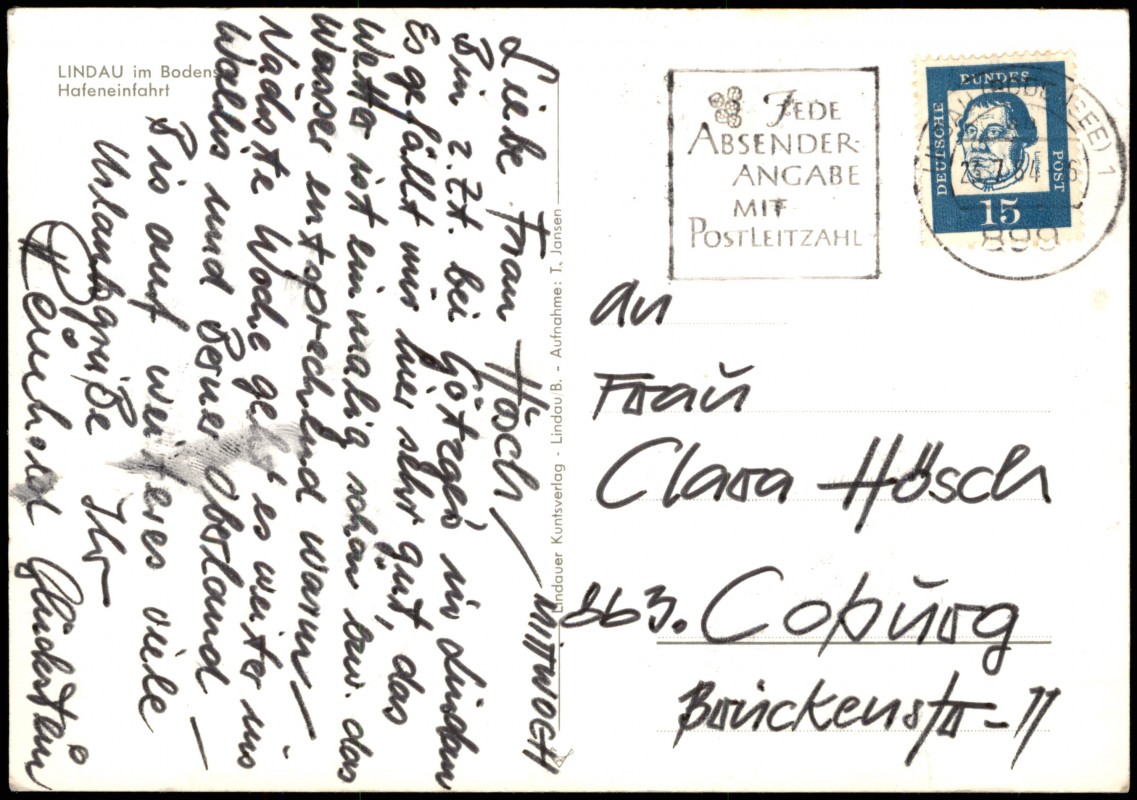 LINDAU im Bodensee
Hafeneinfahrt
MITTWOCH
Liebe Frau Hösch /
Bin z.Zt. bei Götzgers in Lindau
Es gefällt mir hier sehr gut, das
Wetter ist einmalig schön bzw. das
Wasser entsprechend warm /
Nächste Woche geht's weiter ins
Wallis und Berner Oberland /
Bis auf weiteres viele
Urlaubsgrüße Ihr
Reinhold
Lindauer Kuntsverlag - Lindau/B. - Aufnahme: T. Jansen
JEDE
ABSENDER-
ANGABE
MIT
POSTLEITZAHL
BUNDES
DEUTSCHE
POST
15
(BODENSEE) 1
7.64
899
An
Frau
Clara Hösch
863. Coburg
Brückenstr-11